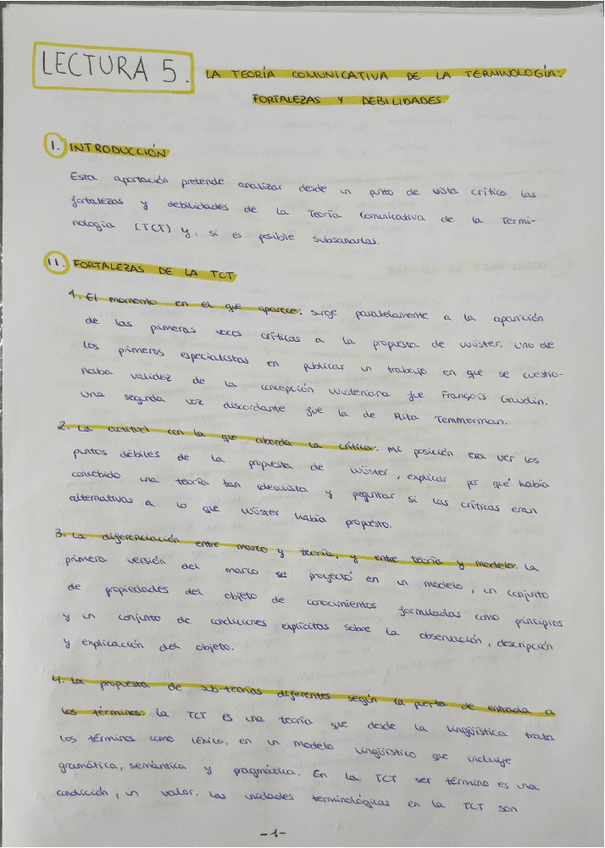 LECTURA 5.
LA TEORÍA COMUNICATIVA DE LA TERMINOLOGÍA:
FORTALEZAS Y DEBILIDADES
I. INTRODUCCIÓN
Esta aportación pretende analizar desde un punto de vista crítico las
fortalezas y debilidades de la Teoría Comunicativa de la Termi-
nología (TCT) y, si es posible subsanarlas.
II. FORTALEZAS DE LA TCT
1. El momento en el que aparece: surge paralelamente a la aparición
de las primeras voces críticas a la propuesta de Wüster. Uno de
los primeros especialistas en publicar un trabajo en que se cuestio-
naba validez de la concepción Wüsteriana fue François Gaudin.
Una segunda voz discordante fue la de Rita Temmerman.
2. La actitud con la que aborda la crítica: mi posición era ver los
puntos débiles de la propuesta de Wüster, explicar por qué había
concebido una teoría tan idealista y preguntar si las críticas eran
alternativas a lo que Wüster había propuesto.
3. La diferenciación entre marco y teoría, y entre teoría y modelo: la
primera versión del marco se proyectó en un modelo, un conjunto
de propiedades del objeto de conocimientos formuladas como principios
y un conjunto de condiciones explícitas sobre la observación, descripción
y explicación del objeto.
4. La propuesta de sub-teorías diferentes según la puerta de entrada a
los términos: la TCT es una teoría que desde la lingüística trata
los términos como léxico, en un modelo lingüístico que incluye
gramática, semántica y pragmática. En la TCT ser término es una
condición, un valor. Las unidades terminológicas en la TCT son
-1-